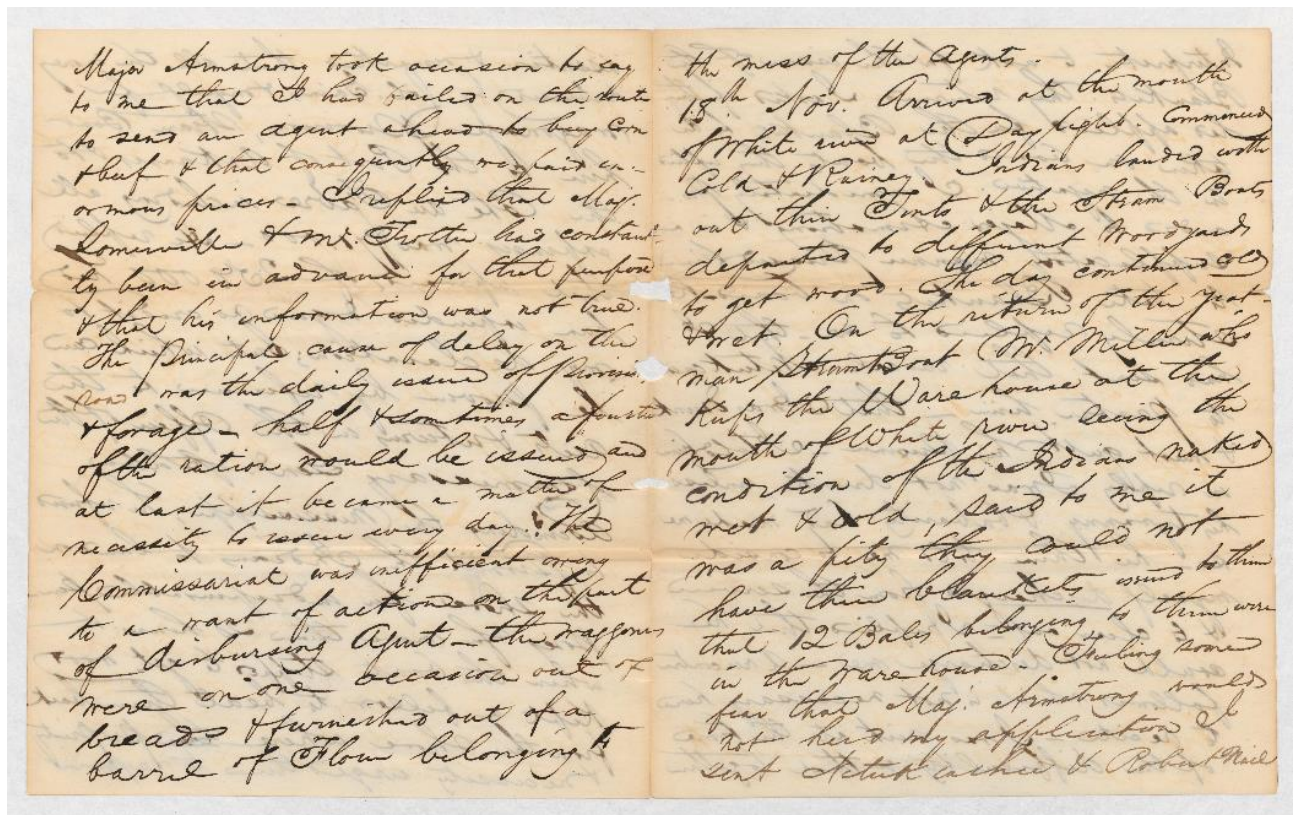 Major Armstrong took occasion to say
to me that I had failed on the route
to send an agent ahead to buy corn
& beef & that consequently we paid en-
ormous prices - I replied that Maj.
Somerville & Mr. Trotter had constant-
ly been in advance for that purpose
& that his information was not true.
The Principal cause of delay on the
road was the daily issue of Provisions
& forage - half & sometimes a fourth
of the ration would be issued and
at last it became a matter of
necessity to issue every day. The
Commissariat was inefficient owing
to a want of action on the part
of disbursing Agent - the waggoners
were on one occasion out of
breads & furnished out of a
barrel of Flour belonging to
the mess of the Agents.
18th Nov. Arrived at the mouth
of White river at Day light. Commenced
Cold & Rainey. Indians landed with
out their Tents & the Steam Boats
departed to different Woodyards
to get wood. The day continued cold
& wet. On the return of the yeat-
man Steam Boat Mr. Miller who
Keeps the Ware house at the
mouth of White river seeing the
condition of the Indians naked
wet & cold, said to me it
was a pity they could not
have their blankets issued to them
that 12 Bales belonging to them were
in the ware house. Feeling some
fear that Maj. Armstrong would
not heed my application I
sent & Robert Nail